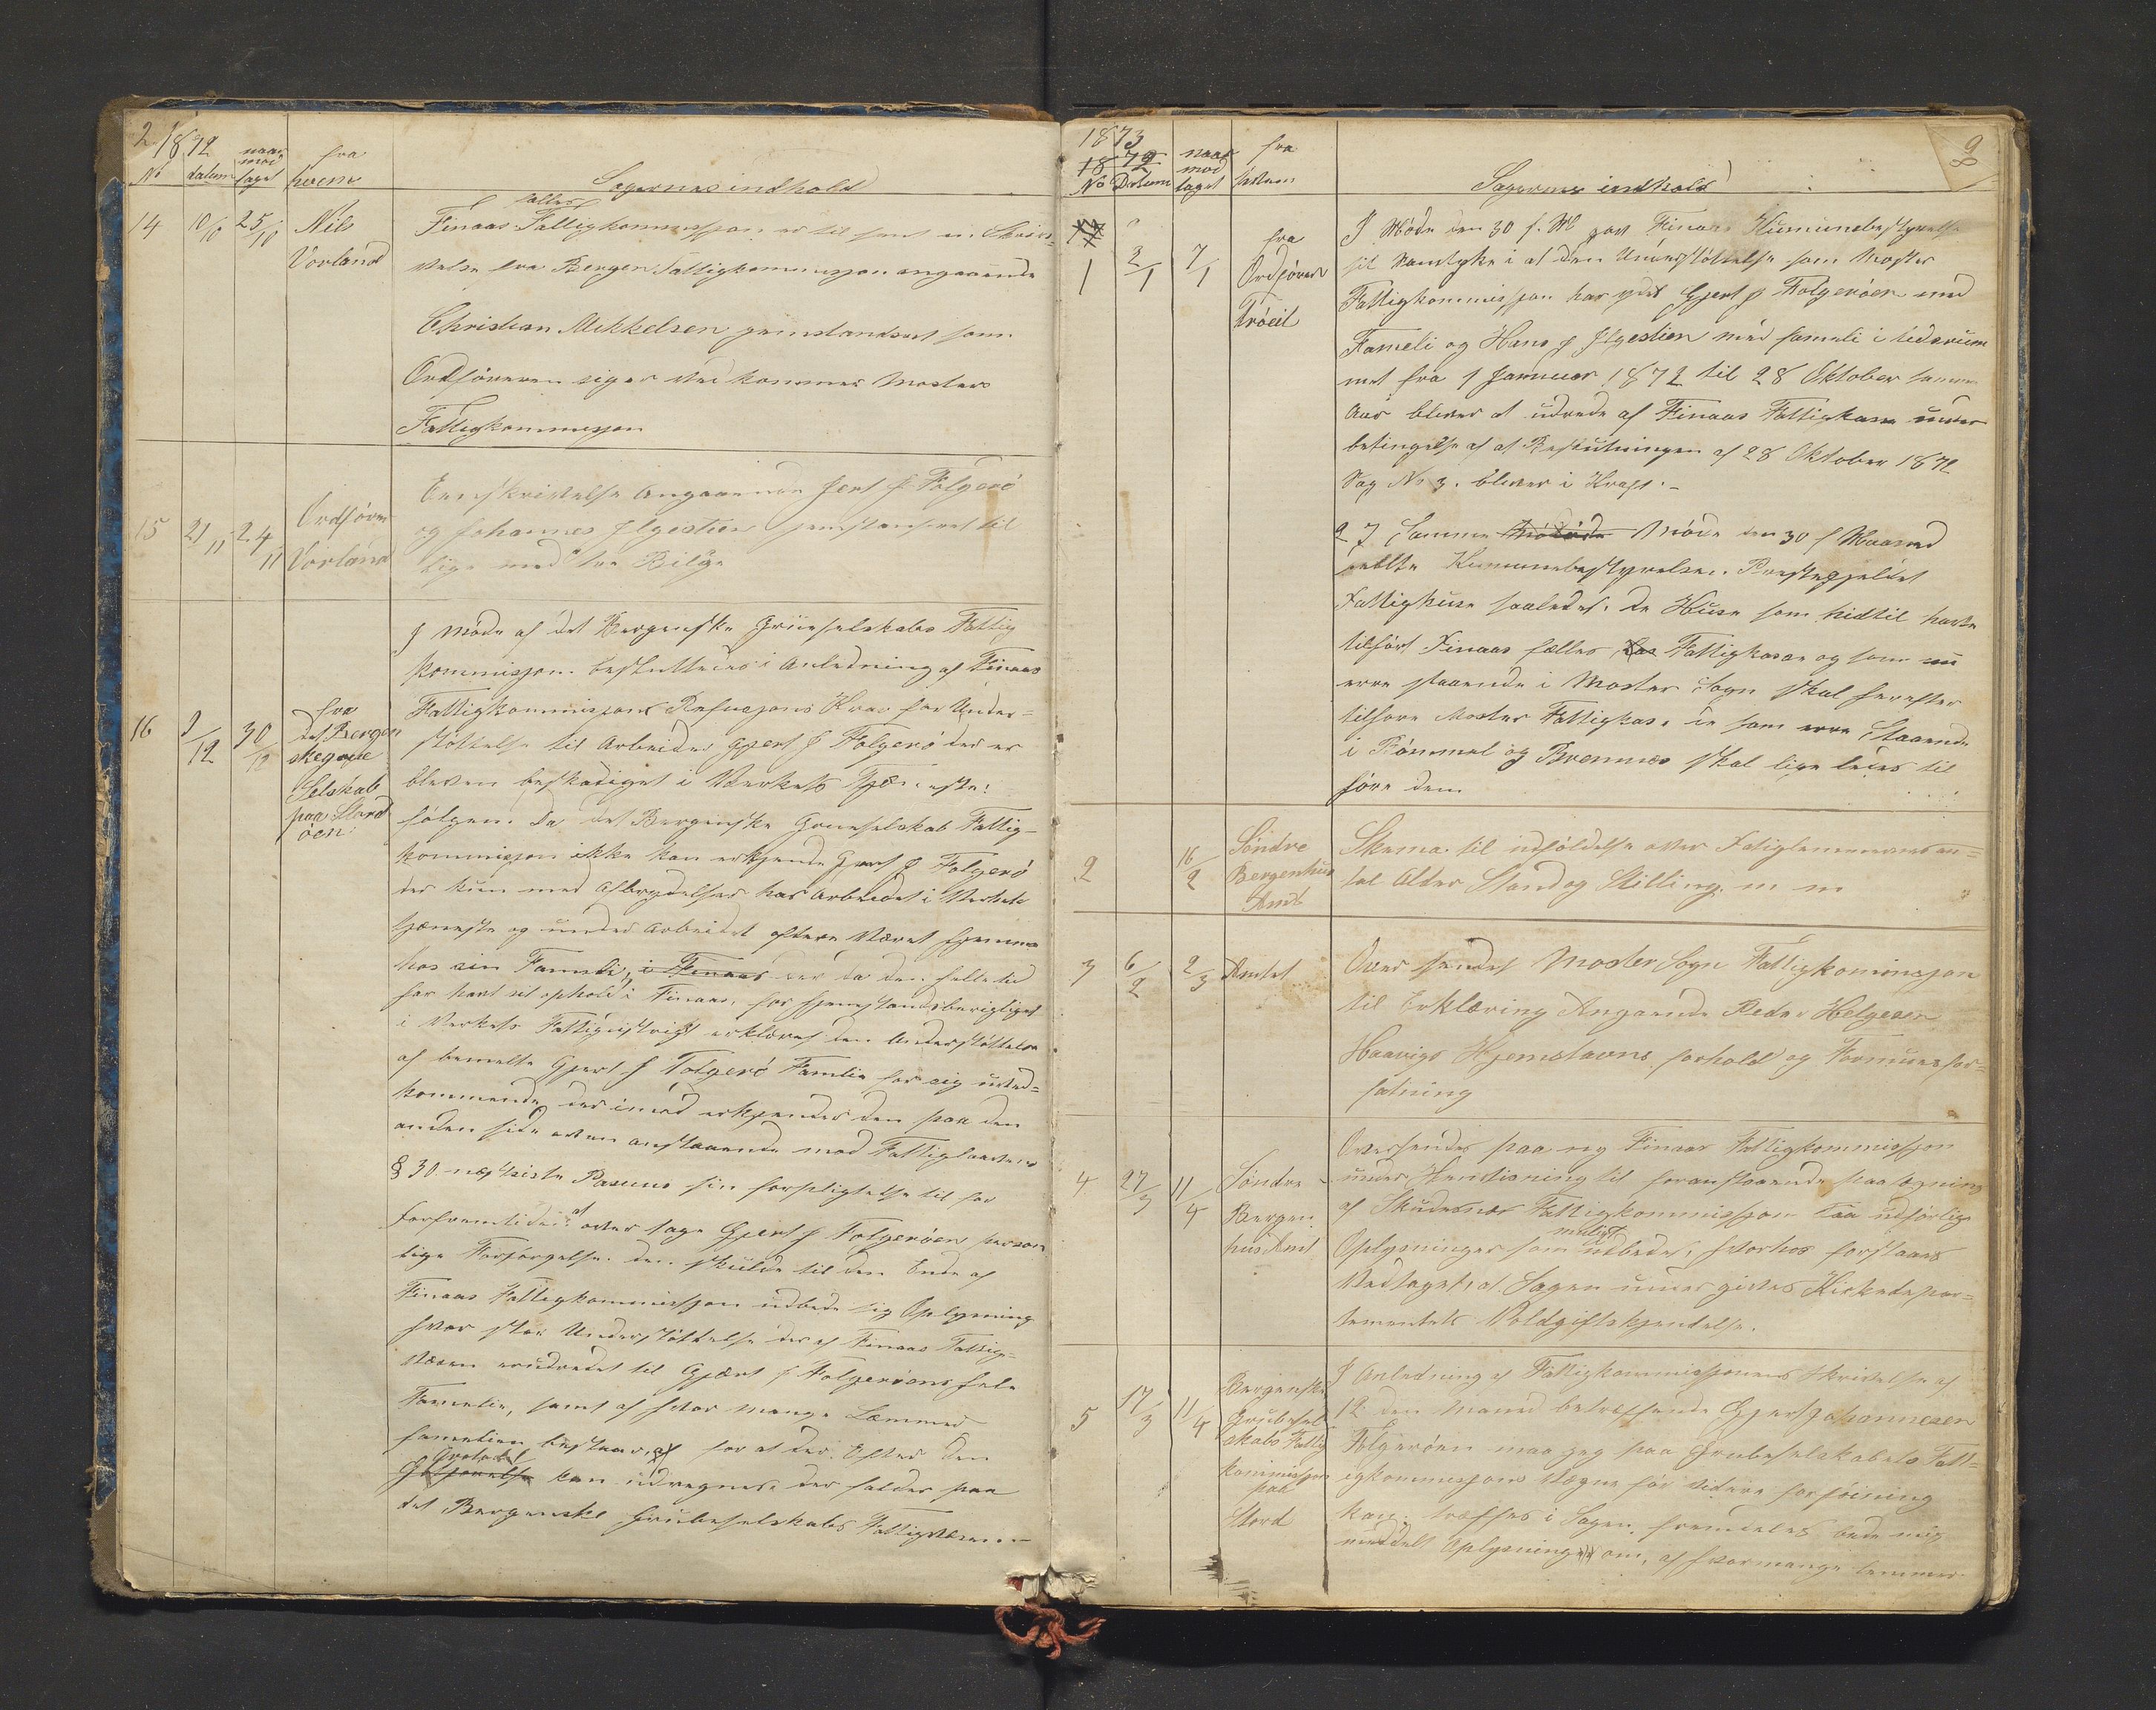 2
1872
No datum naar modtaget
fra hvem
Sagernes indhold
14 10/10 25/10 Nils Vorland
fælles
Finaas Fattigkommissjon er til sent en Skriv-
velse fra Bergen Fattigkommissjon angaaende
Christian Mikkelsen
Ordföreren siger ved kommer Mosters
Fattigkommissjon
15 21/11 24/11 Ordförer Vorland
Een skrivelse Angaaende Jert J Folgerö
og Johannes Ilgestien til
lige med tre Bilge
16 9/12 30/12 fra Det Bergenskegrube Selskab paa Stordöen
J Möde af det Bergenske Grueselskabs Fattig
kommissjon besluttedes i Anledning af Finaas
Fattigkommissjons Refusjons Krav for Under-
støttelse til Arbeider Gjert J Folgerö der er
bleven beskadiget i Værkets Tjeneste:
følgen. Da det Bergenske Grueselskab Fattig-
kommissjon ikke kan erkjende Gjert J Folgerö
der kun med Afbrydelser har Arbeidet i Verkets
tjæneste og under Arbeidet oftere Været hjemme
hos sin Familie, i Finaas der da den hele tid
har havt sit ophold i Finaas, for hjemstandsberigtiget
i Verkets Fattigdistrigt erklæres den Understøttelse
af bemelte Gjert J Folgerö Familie for sig uved-
kommende, der imod erkjender den paa den
anden side overensstaaende med Fattiglovens
§ 30 næstsiste Passus sin forpligtelse til for
forfremtiden at over tage Gjert J Folgeröen person
lige Forsörgelse. den skulde til den Ende af
Finaas Fattigkommissjon udbede sig Oplysning
hvor stor Understøttelse der af Finaas Fattig-
væsen erudredet til Gjært J Folgeröens hele
Familie, samt af hvor mange Lemmer
familien bestaar, for at der Efter den
Protokol
kan udregnes der falder paa
det Bergenske Grubeselskabs Fattigvæsen.-
1873
1872
No Datum naar modtaget
fra hvem
Sagernes indhold
1 2/1 7/1 fra Ordförer Tröeit
J Möde den 30 f. M gav Finaas Kumunebestyrelse
sit Samtyke i at den Understöttelse som Moster
Fattigkommissjon har ydet Gjert J Folgeröen med
Fameli og Hans J Ilgestien med fameli i tidsrum
met fra 1 Januar 1872 til 28 Oktober samme
Aar bliver at udrede af Finaas Fattigkasse under
betingelse af at Beslutningen af 28 Oktober 1872
Sag No 3. bliver i Kraft.-
2 J Samme Möde den 30 f Maaned
Kumunebestyrelsen. Prestegjeldet
Fattighuse saaledes. De Huse som hidtil have
tilhört Finaas fælles Fattigkasse og som nu
erre staaende i Moster Sogn skal herefter
tilhöre Moster Fattigkas. de som erre Staaende
i Bömmel og Bremnes skal lige ledes til
höre dem
2 16/2 Söndre Bergenhus Amt
Skema til udföldelse over Fatiglemmernes an-
tal Alder Stand og Stilling. m m
3 6/2 2/3 Amtet
Over sendes Moster Sogn Fattigkommissjon
til Erklæring Angaaende Peder Helgesen
Haavigs Hjemstavns forhold og Formuesfor-
fatning
4 27/3 11/4 Söndre Bergenhus Amt
Oversendes paa ny Finaas Fattigkommissjon
under Henvisning til foranstaaende paategning
af Skudesnes Fattigkommissjon Saa udförlige
muligt
Oplysninger som udbedes, hvorhos forstaaes
Vedtaget, at Sagen under gives Kirkedepar-
tementets Voldgiftskjendelse.
5 17/3 11/4 Bergenske Grubeselskabs Fattigkommissjon paa Stord
J Anledning af Fattigkommissjonens Skrivelse af
12 den Maaned betræffende Gjert Johannesen
Folgeröen maa jeg paa Grubeselskabets Fatt-
igkommissjons Vegne för videre forföining
kan træffes i Sagen fremdeles bede mig
meddelt Oplysninger om, af hvormange lemmer